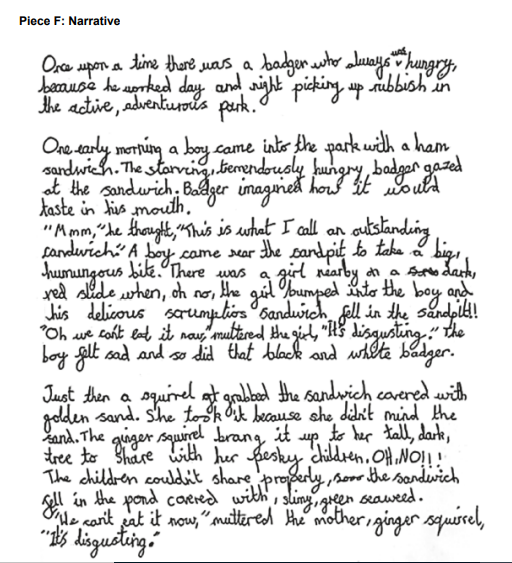 Piece F: Narrative
Once upon a time there was a badger who always was hungry,
because he worked day and night picking up rubbish in
the active, adventurous park.
One early morning a boy came into the park with a ham
sandwich. The starving, tremendously hungry badger gazed
at the sandwich. Badger imagined how it would
taste in his mouth.
"Mmm," he thought, "This is what I call an outstanding
sandwich." A boy came near the sandpit to take a big,
humungous bite. There was a girl nearby on a dark,
red slide when, oh no, the girl bumped into the boy and
his delicous scrumptios sandwich fell in the sandpit!!
"Oh we can't eat it now," muttered the girl, "It's disgusting." The
boy felt sad and so did that black and white badger.
Just then a squirrel grabbed the sandwich covered with
golden sand. She took it because she didn't mind the
sand. The ginger squirrel brang it up to her tall, dark,
tree to share with her pesky children. OH, NO!!!
The children couldn't share properly, soon the sandwich
fell in the pond covered with, slimy, green seaweed.
"We can't eat it now," muttered the mother, ginger squirrel,
"It's disgusting."